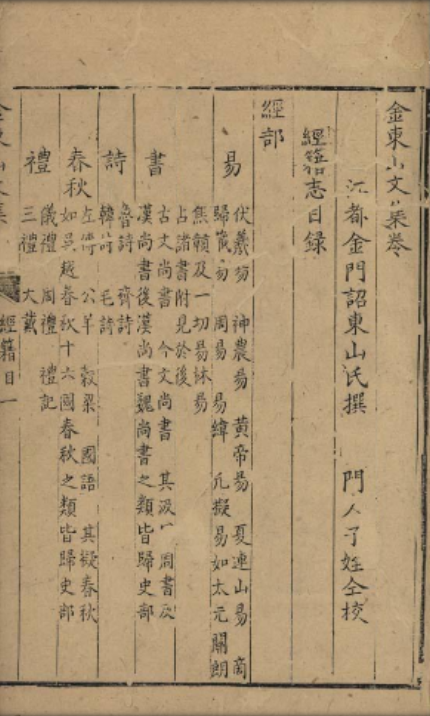 金東山文集卷
江都金門詔東山氏撰 門人子姪仝校
經籍志目錄
經部
易
伏羲易 神農易 黃帝易 夏連山易 商
歸藏易 周易 易緯 凡擬易如太元關朗
焦贛及一切易林易
占諸書附見於後
書
古文尚書 今文尚書 其汲冢周書及
漢尚書後漢尚書魏尚書之類皆歸史部
詩
魯詩 齊詩
韓詩 毛詩
春秋
左傳 公羊 穀梁 國語 其擬春秋
如吳越春秋十六國春秋之類皆歸史部
禮
儀禮 周禮 禮記
三禮 大戴
經籍目一